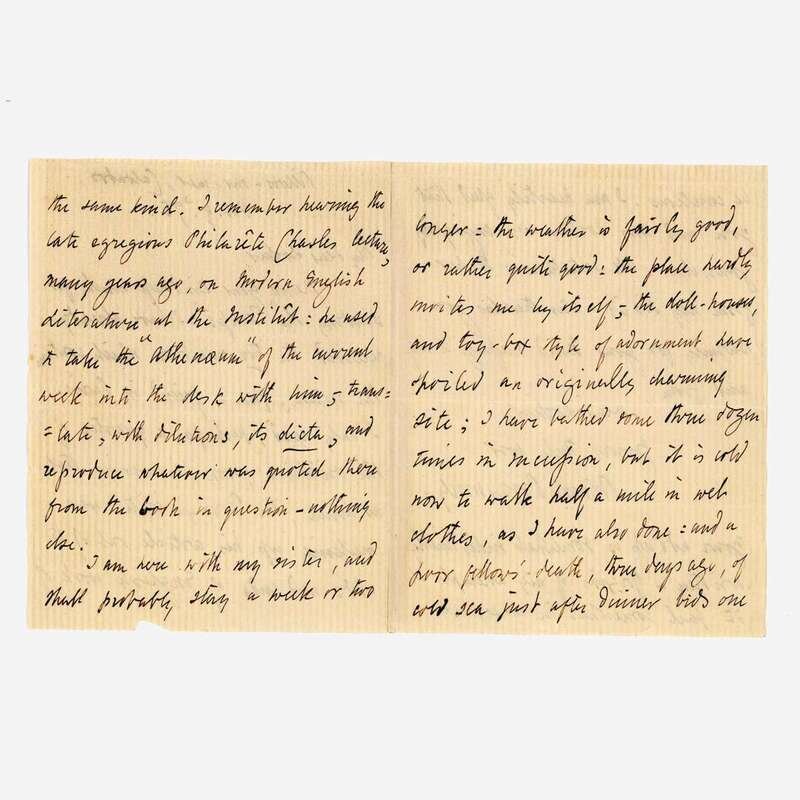 the same kind. I remember hearing the
late egregious Philarète Chasles lecture,
many years ago, on Modern English
Literature at the Institût: he used
to take the "Athenæum" of the current
week into the desk with him, trans=
=late, with dilutions, its dicta, and
reproduce whatever was quoted there
from the book in question – nothing
else.
I am here with my sister, and
shall probably stay a week or two
longer: the weather is fairly good,
or rather quite good: the place hardly
invites me by itself, the doll-houses,
and toy-box style of adornment have
spoiled an originally charming
site; I have bathed some three dozen
times in succession, but it is cold
now to walk half a mile in wet
clothes, as I have also done: and a
poor fellow's death, three days ago, of
cold sea just after dinner bids one